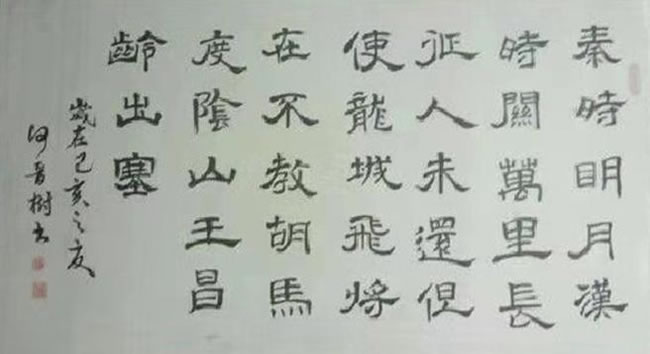 秦時明月漢
時關萬里長
征人未還但
使龍城飛将
在不教胡馬
度陰山王昌
齡出塞
歲在己亥之夏
何晋樹书